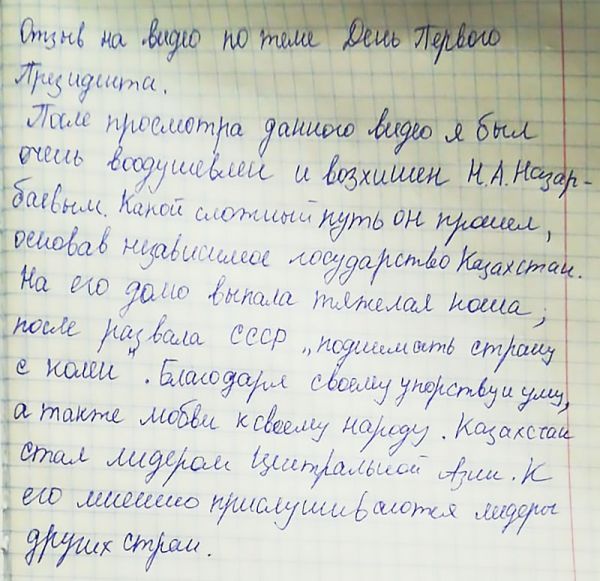 Отзыв на видео по теме День Первого
Президента.
После просмотра данного видео я был
очень воодушевлен и возхишен Н.А.Назар-
баевым. Какой сложный путь он прошел,
основав независимое государство Казахстан.
На его долю выпала тяжелая ноша;
после развала СССР „поднимать страну
с колен". Благодаря своему упорству и уму,
а также любви к своему народу. Казахстан
стал лидером Центральной Азии. К
его мнению прислушиваются лидеры
других стран.